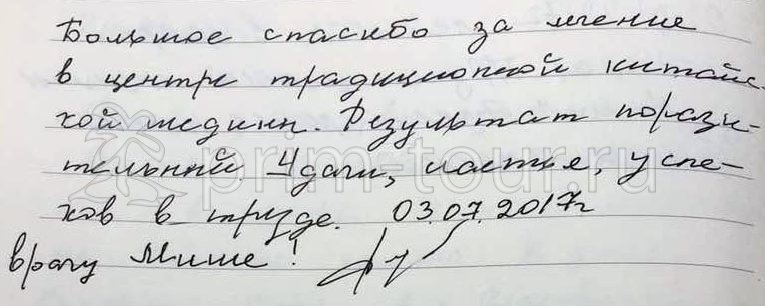 Большое спасибо за лечение
в центре традиционной китайс-
кой медицин. Результат порази-
тельный. Удачи, счастье, успе-
хов в труде. 03.07.2017г
врачу Мише!
prim-tour.ru